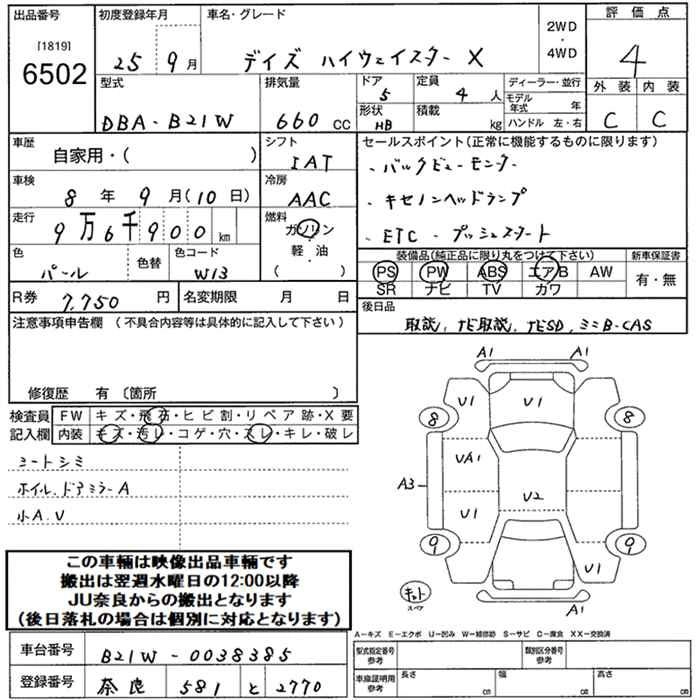 出品番号
[1819]
6502
初度登録年月
25 9月
車名・グレード
デイズ ハイウェイスター X
2WD
・
4WD
評価点
4
外装 内装
C C
型式
DBA-B21W
排気量
660 CC
ドア
5
定員
4 人
形状
HB
積載
kg
ディーラー・並行
モデル年式 年
ハンドル 左・右
車歴
自家用・( )
シフト
IAT
車検
8年 9月(10日)
冷房
AAC
走行
9万6千900km
燃料
ガソリン
軽・油
( )
色
パール
色替
色コード
W13
R券 7,750円
名変期限 月 日
セールスポイント(正常に機能するものに限ります)
、バックビューモニター
、キセノンヘッドランプ
、ETC 、プッシュスタート
装備品(純正品に限り丸をつけて下さい)
新車保証書
PS PW ABS エアB AW
SR ナビ TV カワ
有・無
後日品
取説、TE取説、TESD、ミニB-CAS
注意事項申告欄 (不具合内容等は具体的に記入して下さい)
修復歴 有 〔箇所 〕
検査員
記入欄
FW キズ・飛石・ヒビ割・リペア跡・X要
内装 キズ・汚レ・コゲ・穴・スレ・キレ・破レ
シートシミ
ホイル、ドアミラーA
小A、U
A1
U1 U1
8 8
UA1
A3
U2
U1
9 9
U1
キット
スペア
A1
この車輌は映像出品車輌です
搬出は翌週水曜日の12:00以降
JU奈良からの搬出となります
(後日落札の場合は個別に対応となります)
車台番号 B21W-0038385
登録番号 奈良 581 と 2770
A-キズ E-エクボ U-凹み W-補修跡 S-サビ C-腐食 XX-交換済
型式指定番号
参考
類別区分番号
参考
車庫証明用
参考
長さ cm
幅 cm
高さ cm